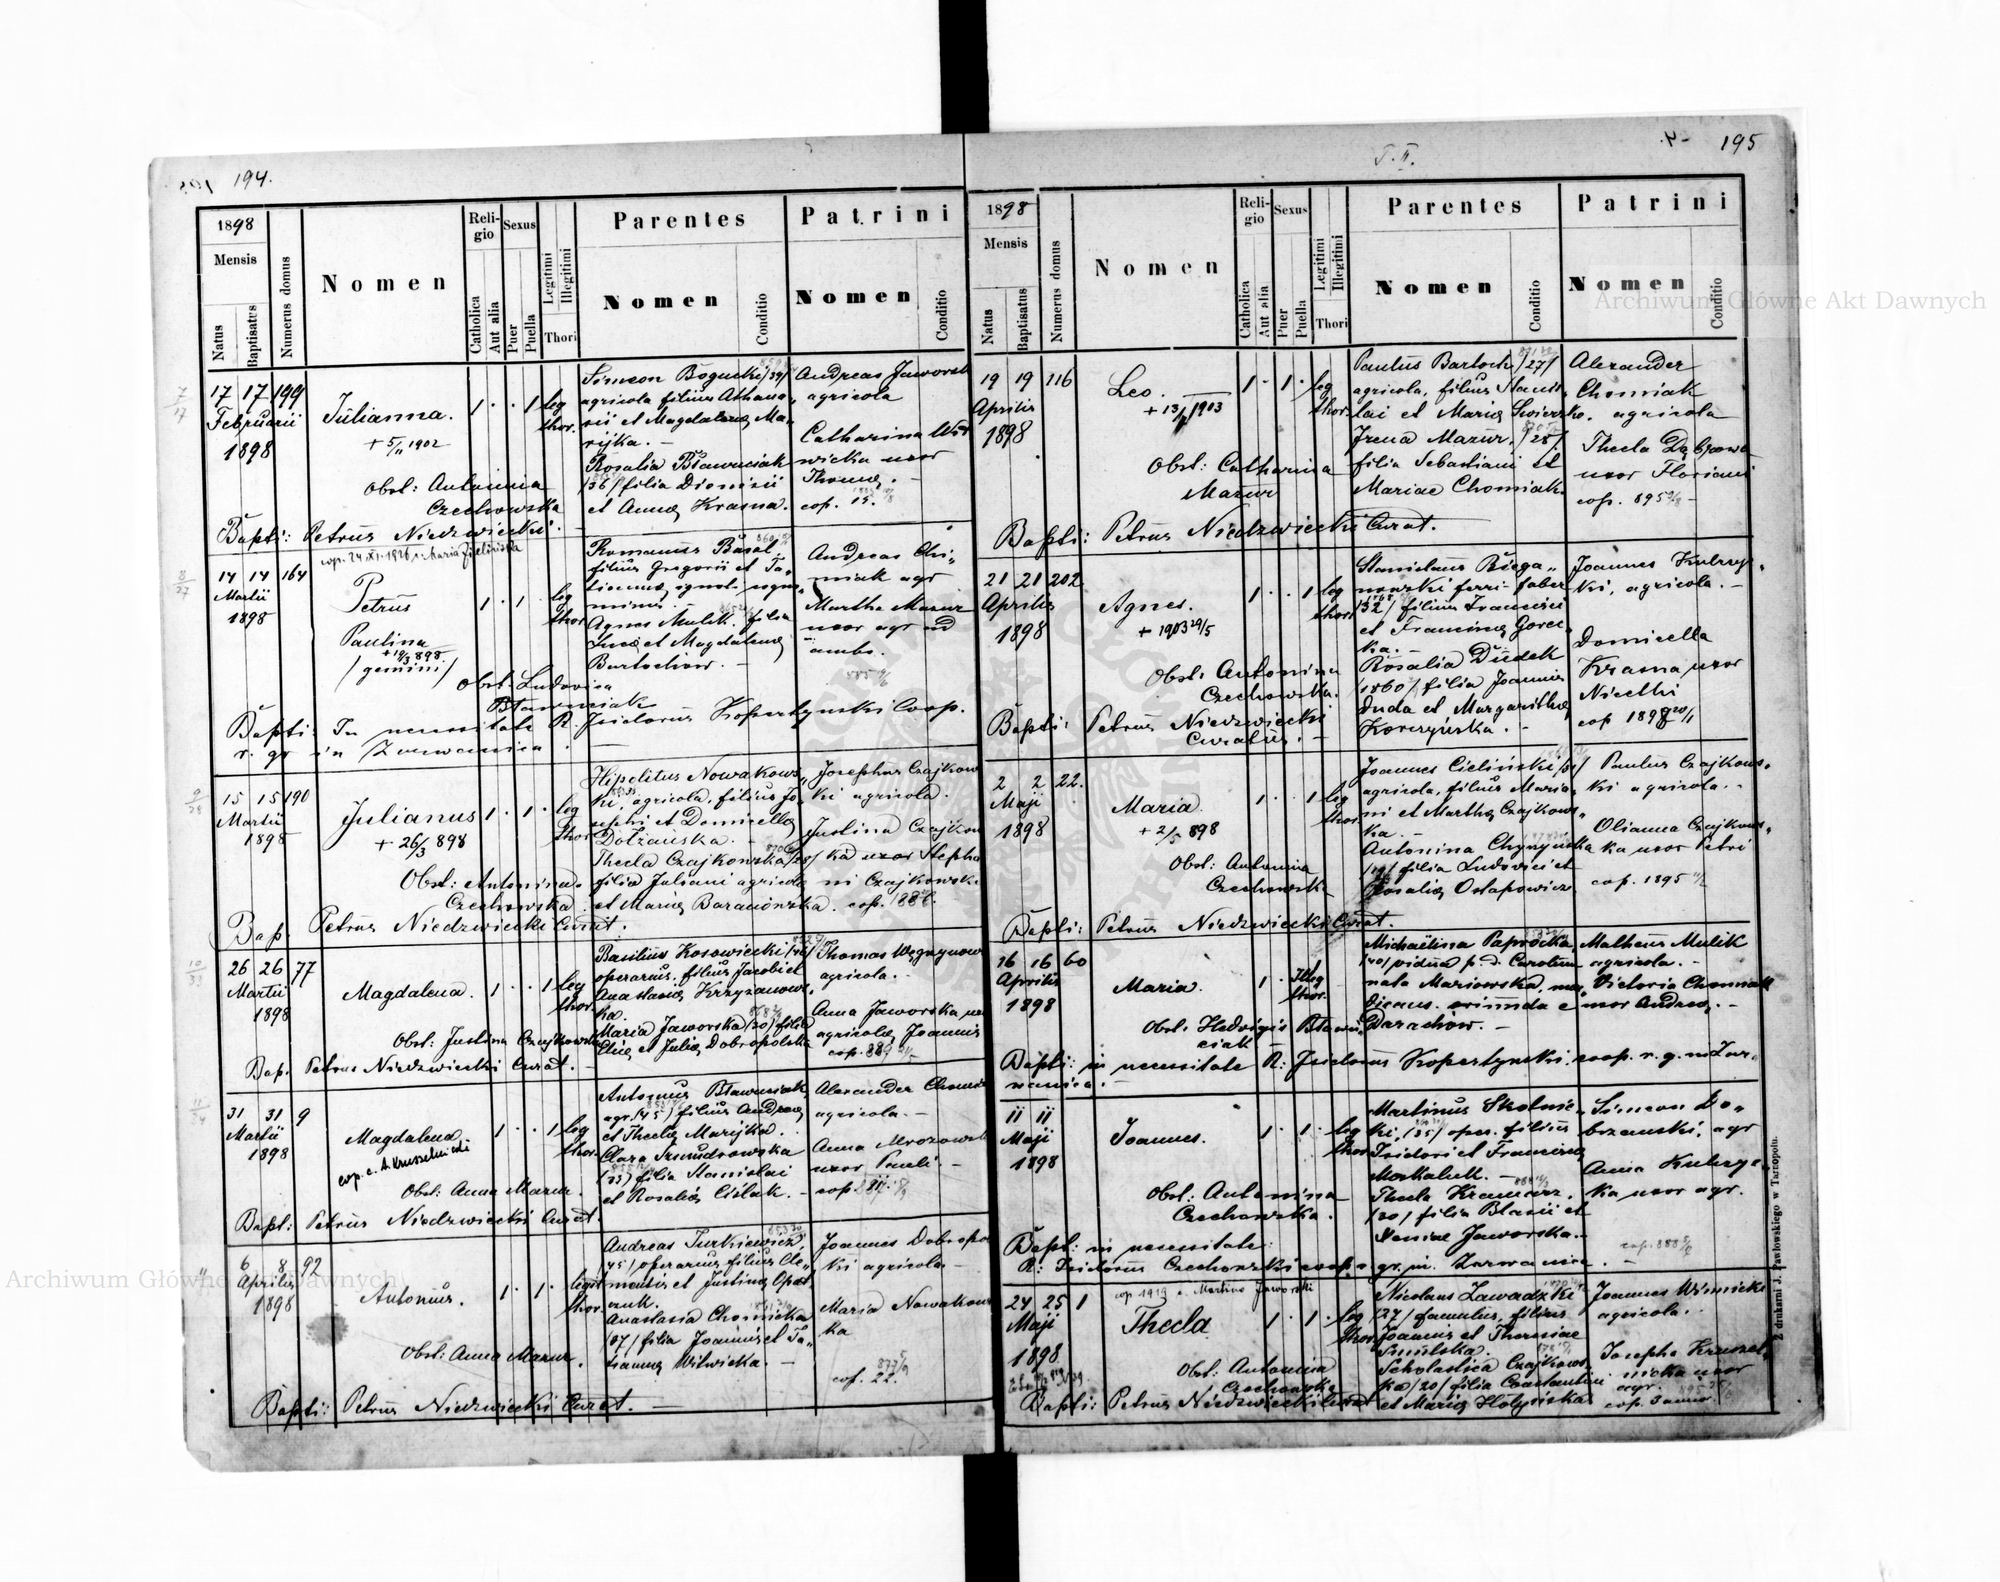 194.
1898
Mensis
Natus
Baptisatus
Numerus domus
Nomen
Religio
Catholica
Aut alia
Sexus
Puer
Puella
Legitimi
Illegitimi
Thori
Parentes
Nomen
Conditio
Patrini
Nomen
Conditio
17 17 199
Februarii
1898
Julianna.
+ 5/11 1902
Obst: Antonina
Czechowska
1 . . 1 leg
thor.
Simeon Bogucki /39/
agricola filius Athana„
sii et Magdalenę Ma„
ryjka. —
Rosalia Bławuciak
/36/ filia Dionisii
et Annę Krasna.
Andreas Jaworsk
agricola
Catharina
wicka uxor
Thomę. —
cop. 15.
Bapti: Petrus Niedzwiecki. —
14 14 164
Martii
1898
cop. 24.XI.1926 c. Maria Zielińska
Petrus
Paulina
+ 19/3 898.
/gemini/
Obst: Ludovica
Bławuciak
1 . 1 . leg
thor
Romanus Basal.
filius Gregorii et Ta„
tiannę, ignoti cogno„
minis.
Agnes Mulik. filia
Lucę et Magdalenę
Bartochów. —
Andreas Cho„
miak agr
Martha Mazur
uxor agr ad
ambo.
Bapti: In necessitate R. Isidorus Kopertynski Coop.
r. gr in Zarwanica. —
15 15 190
Martii
1898
Julianus
+ 26/3 898
Obst: Antonina
Czechowska
1 . 1 . leg
thor
Hipolitus Nowakows„
ki, agricola, filius Jo„
sephi et Domicellę
Dolżańska. —
Thecla Czajkowska /28/
filia Juliani agricolę
et Marię Baranowska.
Josephus Czajkow
ki agricola.
Justina Czajkow
ka uxor Stepha
ni Czajkowski
cop. 188
Bap. Petrus Niedzwiecki Curat.
26 26 77
Martii
1898
Magdalena.
Obst: Justina Czajkowska
1 . . 1 leg
thor.
Basilius Kosowiecki /46/
operarius, filius Jacobi et
Anastasię Krzyżanows„
ka.
Maria Jaworska /30/ filia
Elię et Julię Dobropolska
Thomas Węgrynow
agricola. -
Anna Jaworska
agricolę Joannis
cop. 889
Bap. Petrus Niedzwiecki Curat. —
31 31 9
Martii
1898
Magdalena
cop. c. A. Krusselnicki
Obst: Anna Mazur.
1 . . 1 leg
thor.
Antonius Bławuciak
agr. /45/ filius Andreę
et Theclę Maryjka.
Clara
/33/ filia Stanislai
et Rosalię Cislak. -
Alexander Chomi
agricola. -
Anna Mrozowsk
uxor Pauli. -
cop 887
Bapt: Petrus Niedzwiecki Curat.
6 8 92
Aprilis
1898
Antonius.
Obst: Anna Mazur.
1 . 1 . legit
thor.
Andreas Turkiewicz,
/45/ operarius, filius Cle„
mentis et Justinę
Anastasia Chomicka
/37/ filia Joannis et Ta„
tiannę Witwicka. —
Joannes Dobropo
ki agricola —
Maria Nowakow
ka
cop. 22.
Bapti: Petrus Niedzwiecki Curat. —
195
T. II.
1898
Mensis
Natus
Baptisatus
Numerus domus
Nomen
Religio
Catholica
Aut alia
Sexus
Puer
Puella
Legitimi
Illegitimi
Thori
Parentes
Nomen
Conditio
Patrini
Nomen
Conditio
19 19 116
Aprilis
1898
Leo. —
Obst: Catharina
Mazur
1 . 1 . leg
thor.
Paulus Bartoch /27/
agricola, filius Stanis
lai et Marię
Irena Mazur, /28/
filia Sebastiani et
Mariae Chomiak.
Alexander
Chomiak
agricola
Thecla Dąbrowa
uxor Floriani
cop. 895
Bapti: Petrus Niedzwiecki Curat.
21 21 202
Aprilis
1898
Agnes.
+ 1903 29/5
Obst: Antonina
Czechowska.
1 . . 1 leg
thor
Stanislaus Biega„
nowski ferri-faber
/32/ filius Francisci
et Franciscę Gorec
ka. -
Rosalia Dudek
/1860/ filia Joannis
Duda et Margarithę
Korczyńska. -
Joannes Kulczyc
ki, agricola. —
Domicella
Krasna uxor
Nicetki
cop 1898
Bapti: Petrus Niedzwiecki
Curatus. -
2 2 22.
Maji
1898
Maria
+ 2/5 898
Obst: Antonina
Czechowska
1 . . 1 leg
thor
Joannes Cieliński
agricola, filius Maria„
ni et Marthę Czajkows„
ka. -
Antonina
filia Ludovici et
Rosalię Ostapowicz
Paulus Czajkows„
ki agricola. -
Olianna Czajkows„
ka uxor Petri
cop. 1895
Bapti: Petrus Niedzwiecki Curat.
16 16 60
Aprilis
1898
Maria.
Obst. Hedvigis Bławu„
ciak
1 . 1 Illeg
thor.
Michaelina Paprocka
/40/ vidua p. d. Carolum
nata Mariowska, men„
dicans. oriunda e
Darachów. —
Matheus Mulik
agricola. —
Victoria Chomiak
uxor Andreę. -
Bapti: in necessitate R: Isidorus Kopertynski. coop. r. g. in Zar„
wanica. -
11 11
Maji
1898
Joannes.
Obst: Antonina
Czechowska.
1 . 1 . leg
thor
Martinus Skolnic„
ki, /35/ oper. filius
Isidori et Franciscę
Moskaluk. —
Thecla Kramarz.
/30/ filia Blasii et
Xeniae Jaworska.
Simeon Do„
brzanski, agr
Anna Kulczyc„
ka uxor agr.
cop. 888
Bapt: in necessitate:
R: Isidorus Czechowski coop. gr. in. Zarwanica. —
24 25 1
Maji
1898
cop 1919 c. Martino Jaworski
Thecla
Obst: Antonina
Czechowska
1 . 1 . leg
thor
Nicolaus Zawadzki
/27/ famulus, filius
Joannis et Theresiae
Smulska.
Scholastica Czajkows„
ka /20/ filia Constantini
et Marię Hołyńska
Joannes Winnicki
agricola.
Josepha Kruszel„
nicka uxor
agr.
cop.
Bapti: Petrus Niedzwiecki Curat
Z drukarni J. Pawłowskiego w Tarnopolu.
Archiwum Główne Akt Dawnych
Archiwum Główne Akt Dawnych